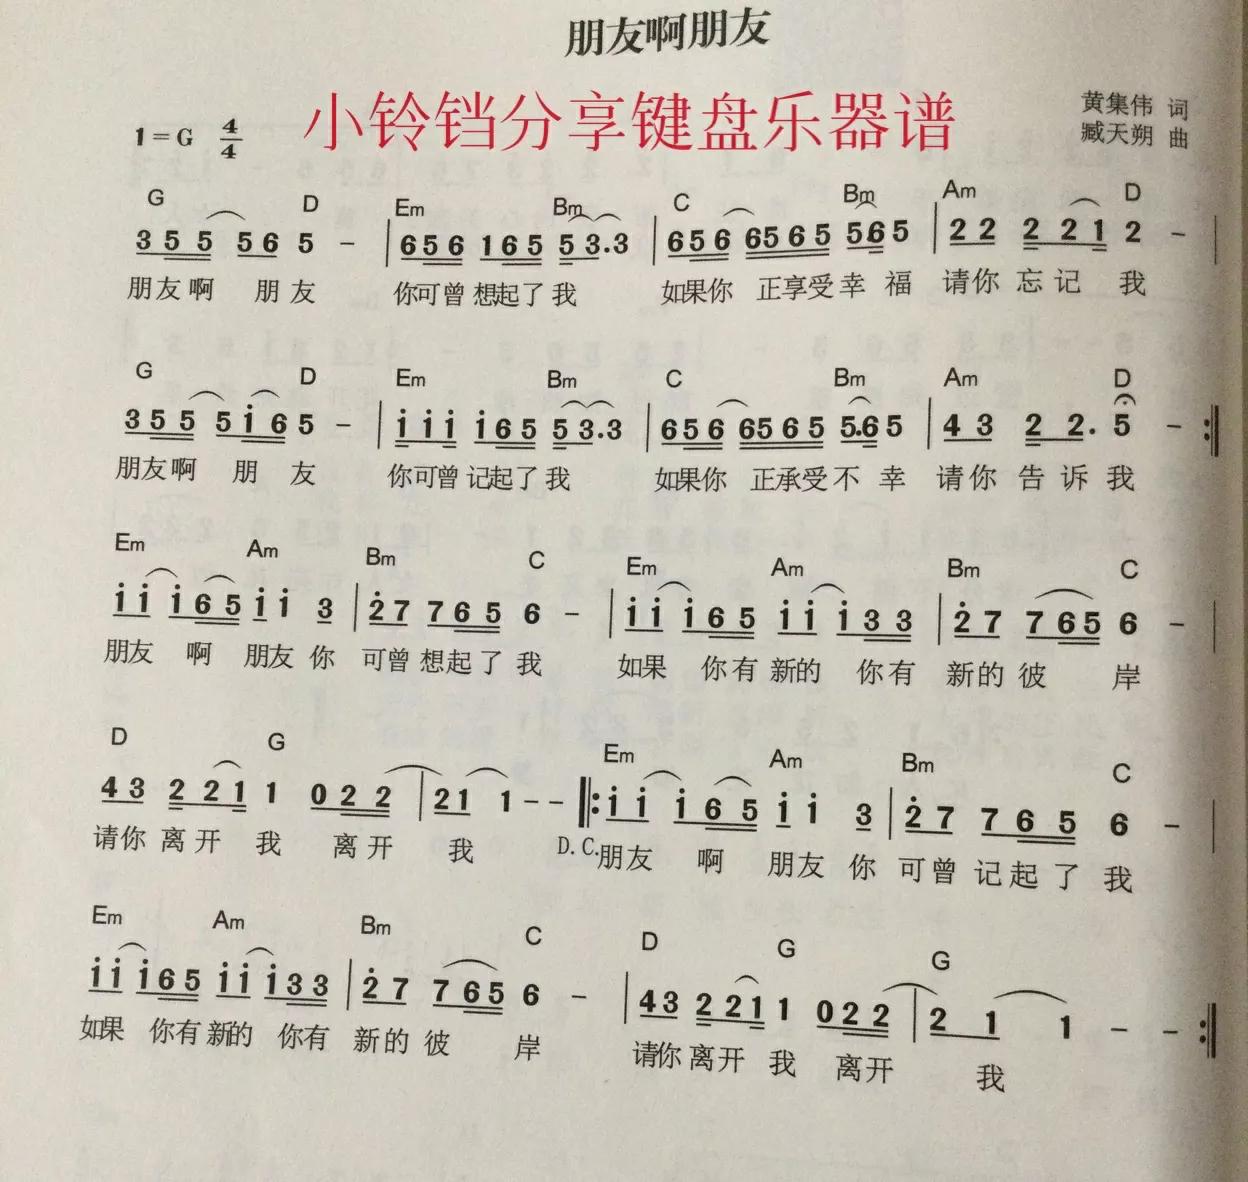 朋友啊朋友
小铃铛分享键盘乐器谱
黄集伟 词
1=G 4/4
臧天朔 曲
G D Em Bm C Bm Am D
3 5 5 5 6 5 - | 6 5 6 1 6 5 5 3. 3 | 6 5 6 6 5 6 5 5 6 5 | 2 2 2 2 1 2 - |
朋友啊 朋 友 你可曾 想起了 我 如果你 正享受 幸 福 请你 忘记 我
G D Em Bm C Bm Am D
3 5 5 5 i 6 5 - | i i i i 6 5 5 3. 3 | 6 5 6 6 5 6 5 5. 6 5 | 4 3 2 2. 5 - :|
朋友啊 朋 友 你可曾 记起了 我 如果你 正承受 不 幸 请你 告 诉 我
Em Am Bm C Em Am Bm C
i i i 6 5 i i 3 | 2̇ 7 7 6 5 6 - | i i i 6 5 i i i 3 3 | 2̇ 7 7 6 5 6 - |
朋友 啊 朋友 你 可曾 想起了 我 如果 你有 新的 你有 新的 彼 岸
D G Em Am Bm C
4 3 2 2 1 1 0 2 2 | 2 1 1 - - |: i i i 6 5 i i 3 | 2̇ 7 7 6 5 6 - |
请你 离开 我 离开 我 D.C. 朋友 啊 朋友 你 可曾 记起了 我
Em Am Bm C D G G
i i i 6 5 i i i 3 3 | 2̇ 7 7 6 5 6 - | 4 3 2 2 1 1 0 2 2 | 2 1 1 - - :|
如果 你有 新的 你有 新的 彼 岸 请你 离开 我 离开 我